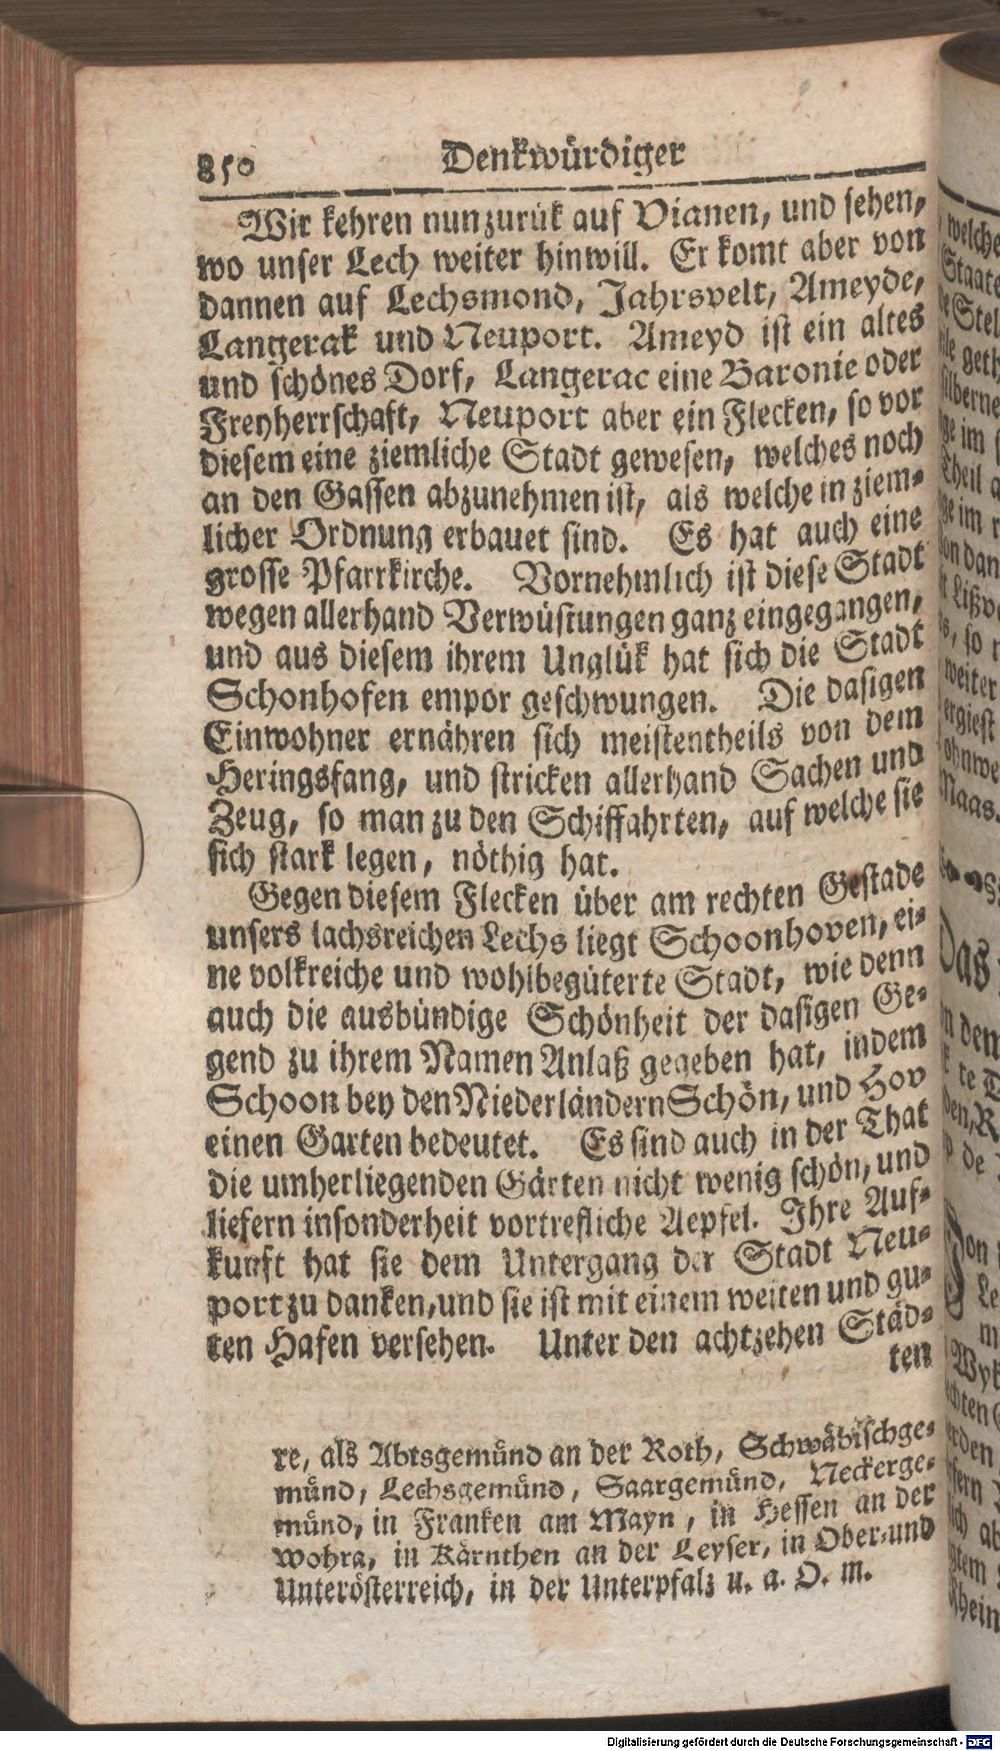 850 Denkwürdiger
Wir kehren nun zurük auf Vianen, und sehen,
wo unser Lech weiter hinwill. Er komt aber von
dannen auf Lechsmond, Jahrsvelt, Ameyde,
Langerak und Neuport. Ameyd ist ein altes
und schönes Dorf, Langerac eine Baronie oder
Freyherrschaft, Neuport aber ein Flecken, so vor
diesem eine ziemliche Stadt gewesen, welches noch
an den Gassen abzunehmen ist, als welche in ziem-
licher Ordnung erbauet sind. Es hat auch eine
grosse Pfarrkirche. Vornehmlich ist diese Stadt
wegen allerhand Verwüstungen ganz eingegangen,
und aus diesem ihrem Unglük hat sich die Stadt
Schonhofen empor geschwungen. Die dasigen
Einwohner ernähren sich meistentheils von dem
Heringsfang, und stricken allerhand Sachen und
Zeug, so man zu den Schiffahrten, auf welche sie
sich stark legen, nöthig hat.
Gegen diesem Flecken über am rechten Gestade
unsers lachsreichen Lechs liegt Schoonhoven, ei-
ne volkreiche und wohlbegüterte Stadt, wie denn
auch die ausbündige Schönheit der dasigen Ge-
gend zu ihrem Namen Anlaß gegeben hat, indem
Schoon bey den Niederländern Schön, und Hov
einen Garten bedeutet. Es sind auch in der That
die umherliegenden Gärten nicht wenig schön, und
liefern insonderheit vortrefliche Aepfel. Ihre Auf-
kunft hat sie dem Untergang der Stadt Neu-
port zu danken, und sie ist mit einem weiten und gu-
ten Hafen versehen. Unter den achtzehen Städ-
ten
re, als Abtsgemünd an der Roth, Schwäbischge-
münd, Lechsgemünd, Saargemünd, Neckerge-
münd, in Franken am Mayn, in Hessen an der
Wohra, in Kärnthen an der Leyser, in Ober-und
Unterösterreich, in der Unterpfalz u. a. O. m.
Digitalisierung gefördert durch die Deutsche Forschungsgemeinschaft - DFG